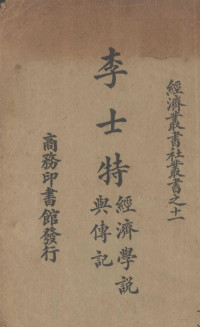 經濟叢書社叢書之十一
李士特
經濟學説
與傳記
商務印書館發行